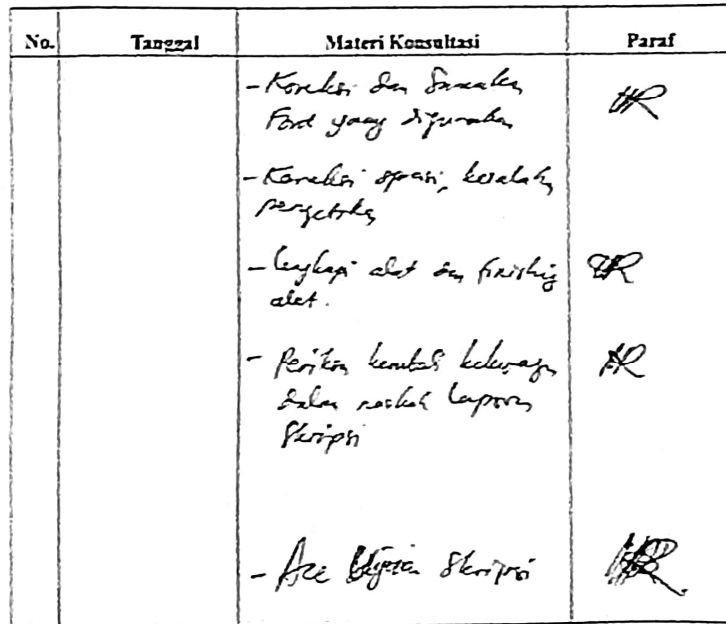 No. Tanggal Materi Konsultasi Paraf
- Koreksi dan Samakan
Font yang digunakan
- Koreksi spasi, kesalahan
pengetikan
- lengkapi alat dan finishing
alat.
- Periksa kembali kekurangan
dalam naskah laporan
Skripsi
- Acc Ujian Skripsi